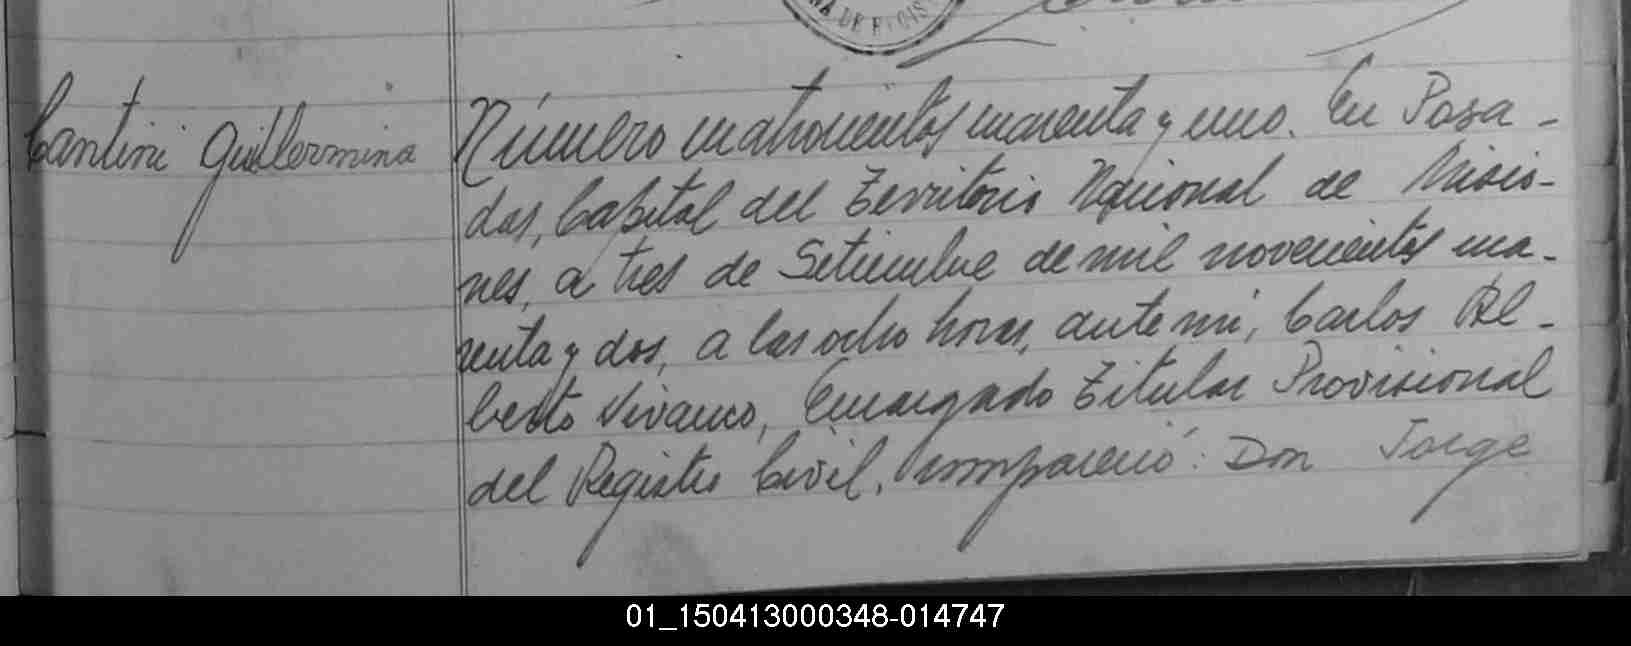 NA DE REGIS
Cantini Guillermina
Número cuatrocientos cuarenta y uno. En Posa-
das, Capital del Territorio Nacional de Misio-
nes, a tres de Setiembre de mil novecientos cua-
renta y dos, a las ocho horas, ante mi, Carlos Al-
berto Vivanco, Encargado Titular Provisional
del Registro Civil, compareció: Don Jorge
01_150413000348-014747